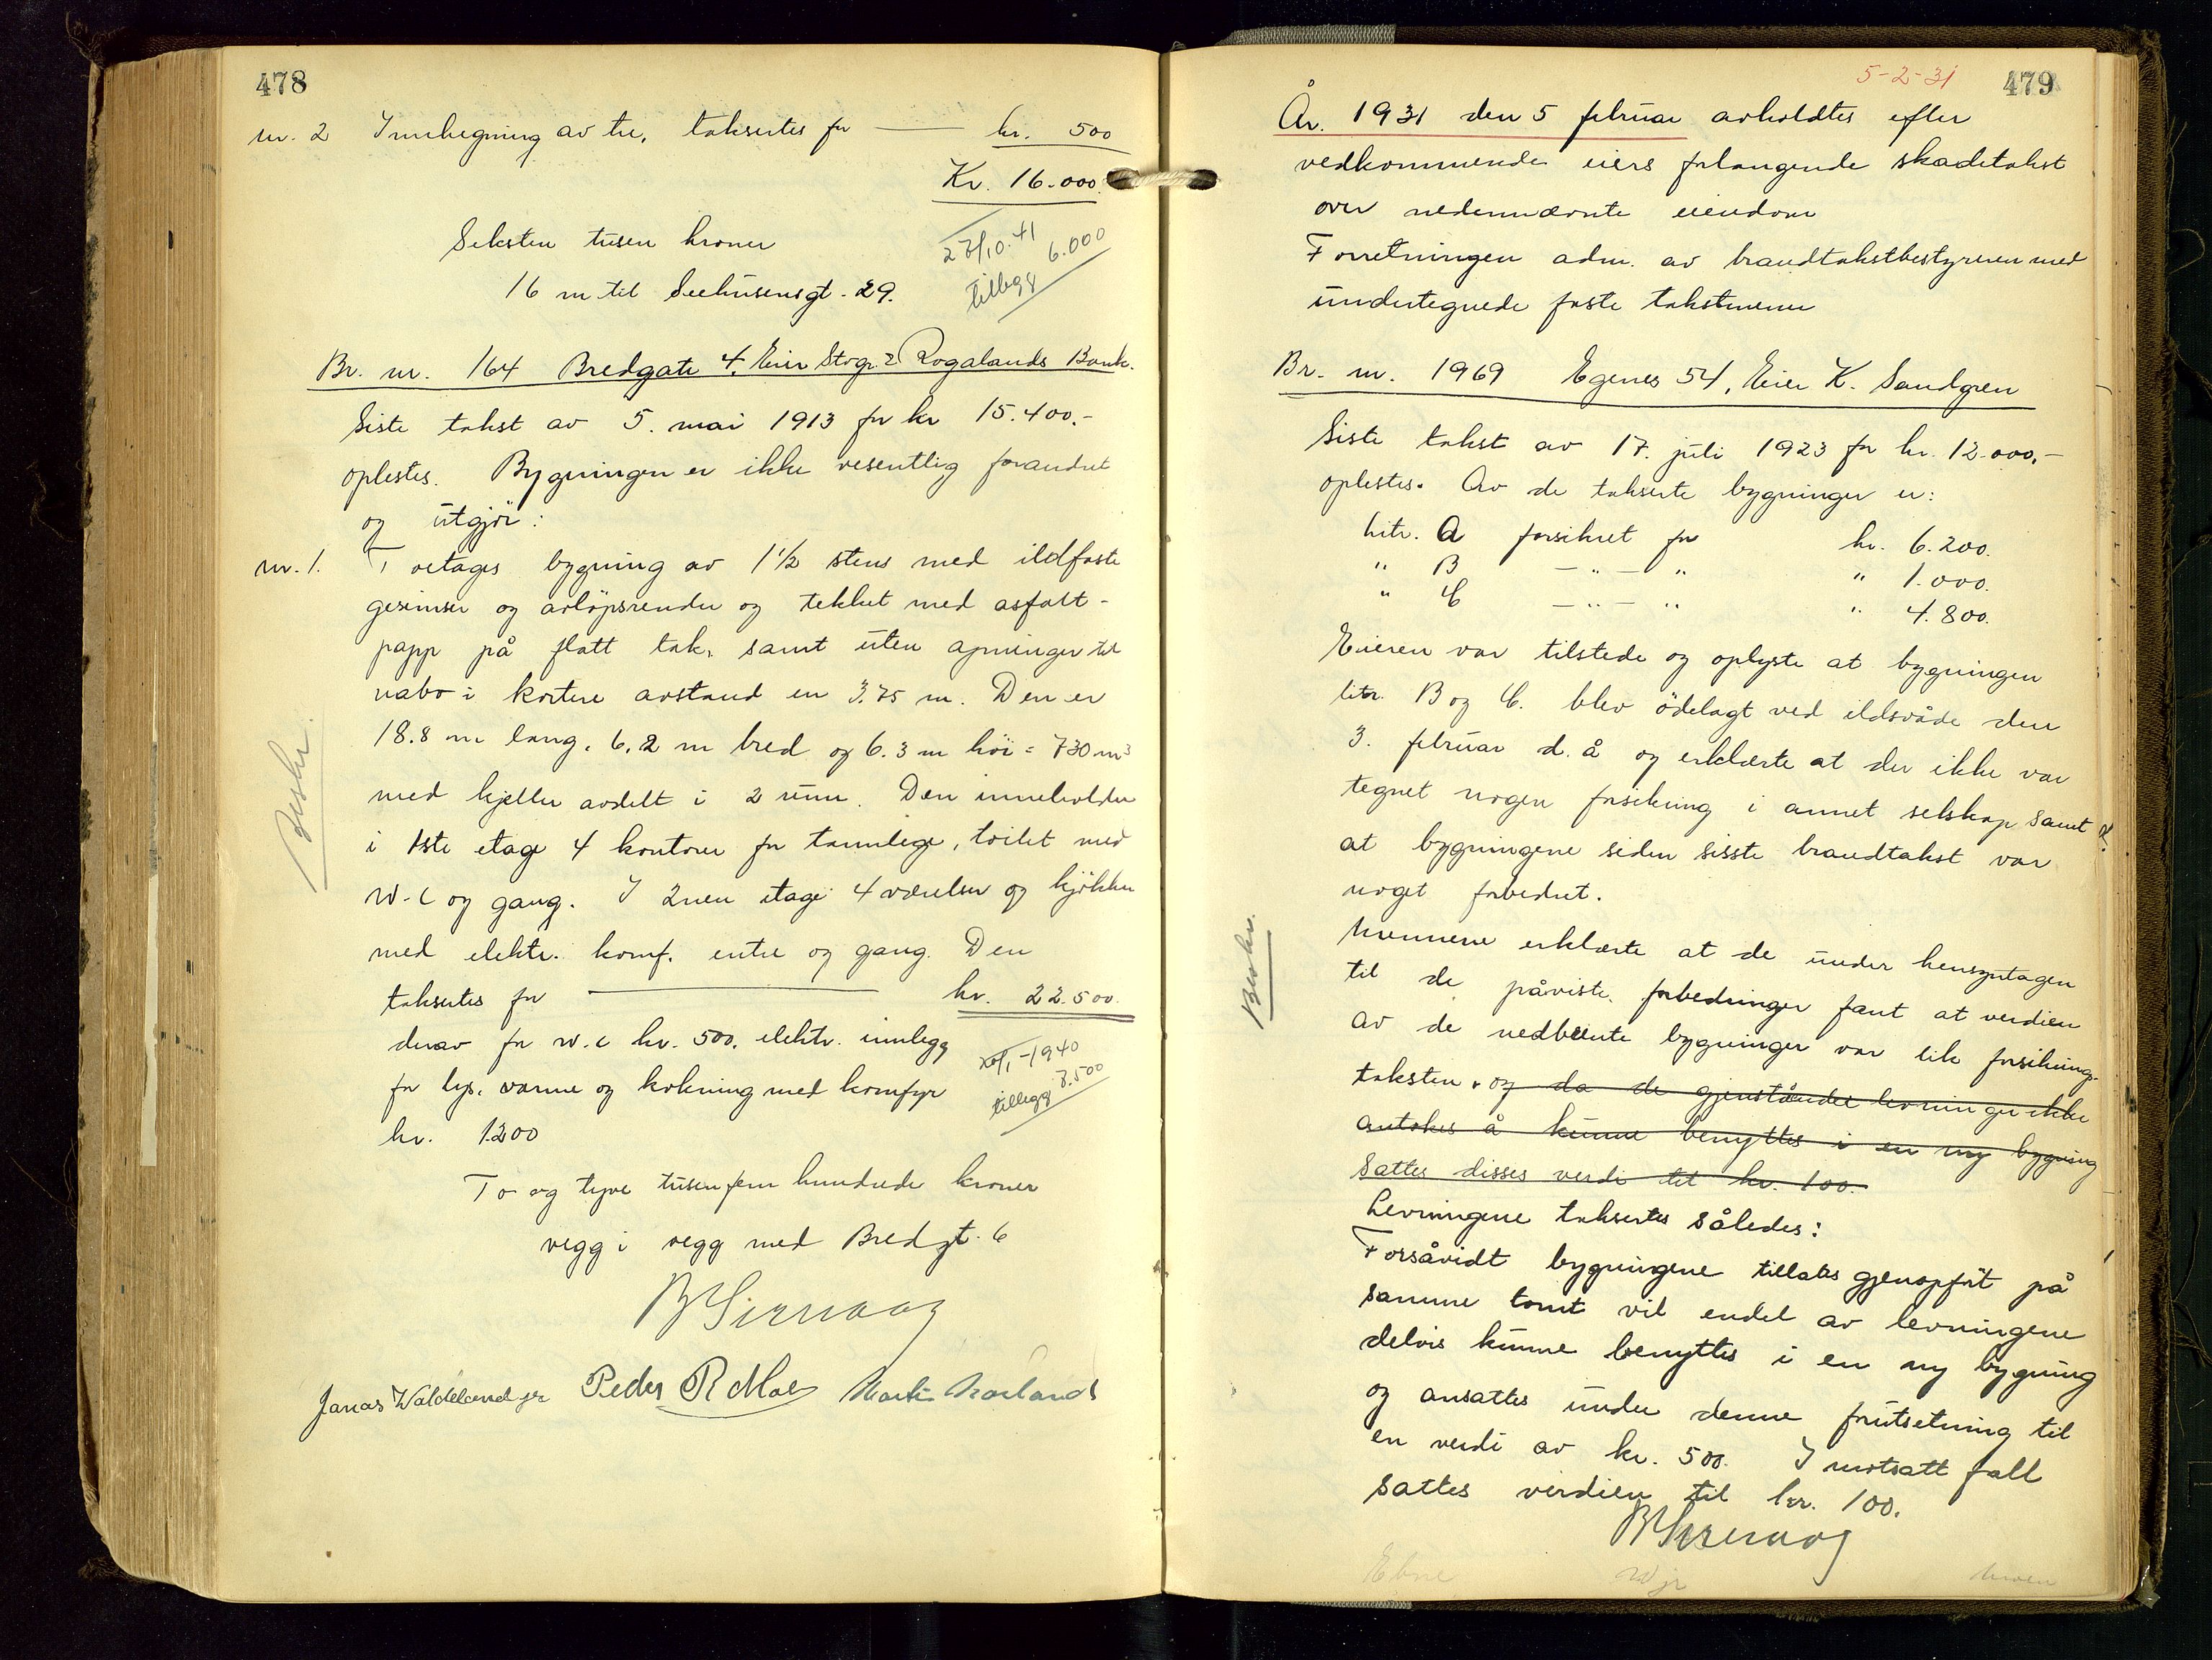 478
nr. 2 Innhegning av tre, takseres for — kr. 500
Kr. 16.000.
Seksten tusen kroner
16 m til Seehusensgt. 29.
23/10.41
tillegg 6.000
Br. nr. 164 Bredgate 4, Eier Stvgr. & Rogalands Bank.
Siste takst av 5. mai 1913 for kr 15.400.-
oplestes. Bygningen er ikke vesentlig forandret
og utgjør:
nr. 1. Toetages bygning av 1 1/2 stens med ildfaste
gesimser og avløpsrender og tekket med asfalt-
papp på flatt tak, samt uten åpninger til
nabo i kortere avstand en 3.75 m. Den er
18.8 m lang, 6.2 m bred og 6.3 m høi = 730 m³
med kjeller avdelt i 2 rum. Den inneholder
i 1ste etage 4 kontorer for tannlege, toilet med
W.C og gang. I 2nen etage 4 værelser og kjøkken
med elektr. komf. entre og gang. Den
takseres for — kr. 22.500.
derav for w.c kr. 500. elektr. innlegg
for lys, varme og kokning med komfyr
kr. 1200
-1940
tillegg 7.500
To og tyve tusen fem hundrede kroner
vegg i vegg med Bredgt. 6
Beskr.
Jonas Waldeland jr Peder R Moe
5-2-31
479
År. 1931 den 5 februar avholdtes efter
vedkommende eiers forlangende skadetakst
over nedennævnte eiendom
Forretningen adm. av brandtakstbestyreren med
undertegnede faste takstmenn
Br. nr. 1969 Egenes 54, Eier K. Sandgren
Siste takst av 17. juli 1923 for kr. 12.000,-
oplestes. Av de takserte bygninger er:
Litr. A forsikret for kr. 6.200.
" B — " — " " 1.000.
" C — " — " " 4.800.
Eieren var tilstede og oplyste at bygningen
litr. B og C. blev ødelagt ved ildsvåde den
3. februar d. å og erklærte at der ikke var
tegnet nogen forsikring i annet selskap samt
at bygningene siden sisste brandtakst var
noget forbedret.
Mennene erklærte at de under hensyntagen
til de påviste forbedringer fant at verdien
av de nedbrente bygninger var lik forsikrings-
taksten. og da de gjenstående levninger ikke
antokes å kunne benyttes i en ny bygning
sattes disses verdi til kr. 100.
Levningene taksertes således:
Forsåvidt bygningene tillates gjenopført på
samme tomt vil endel av levningene
delvis kunne benyttes i en ny bygning
og ansattes under denne forutsetning til
en verdi av kr. 500. I motsatt fall
sattes verdien til kr. 100.
Beskr.